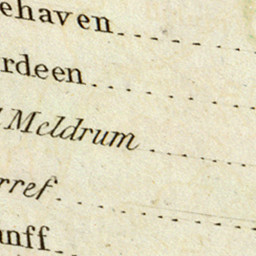 ehaven
rdeen
Meldrum
rref
nff